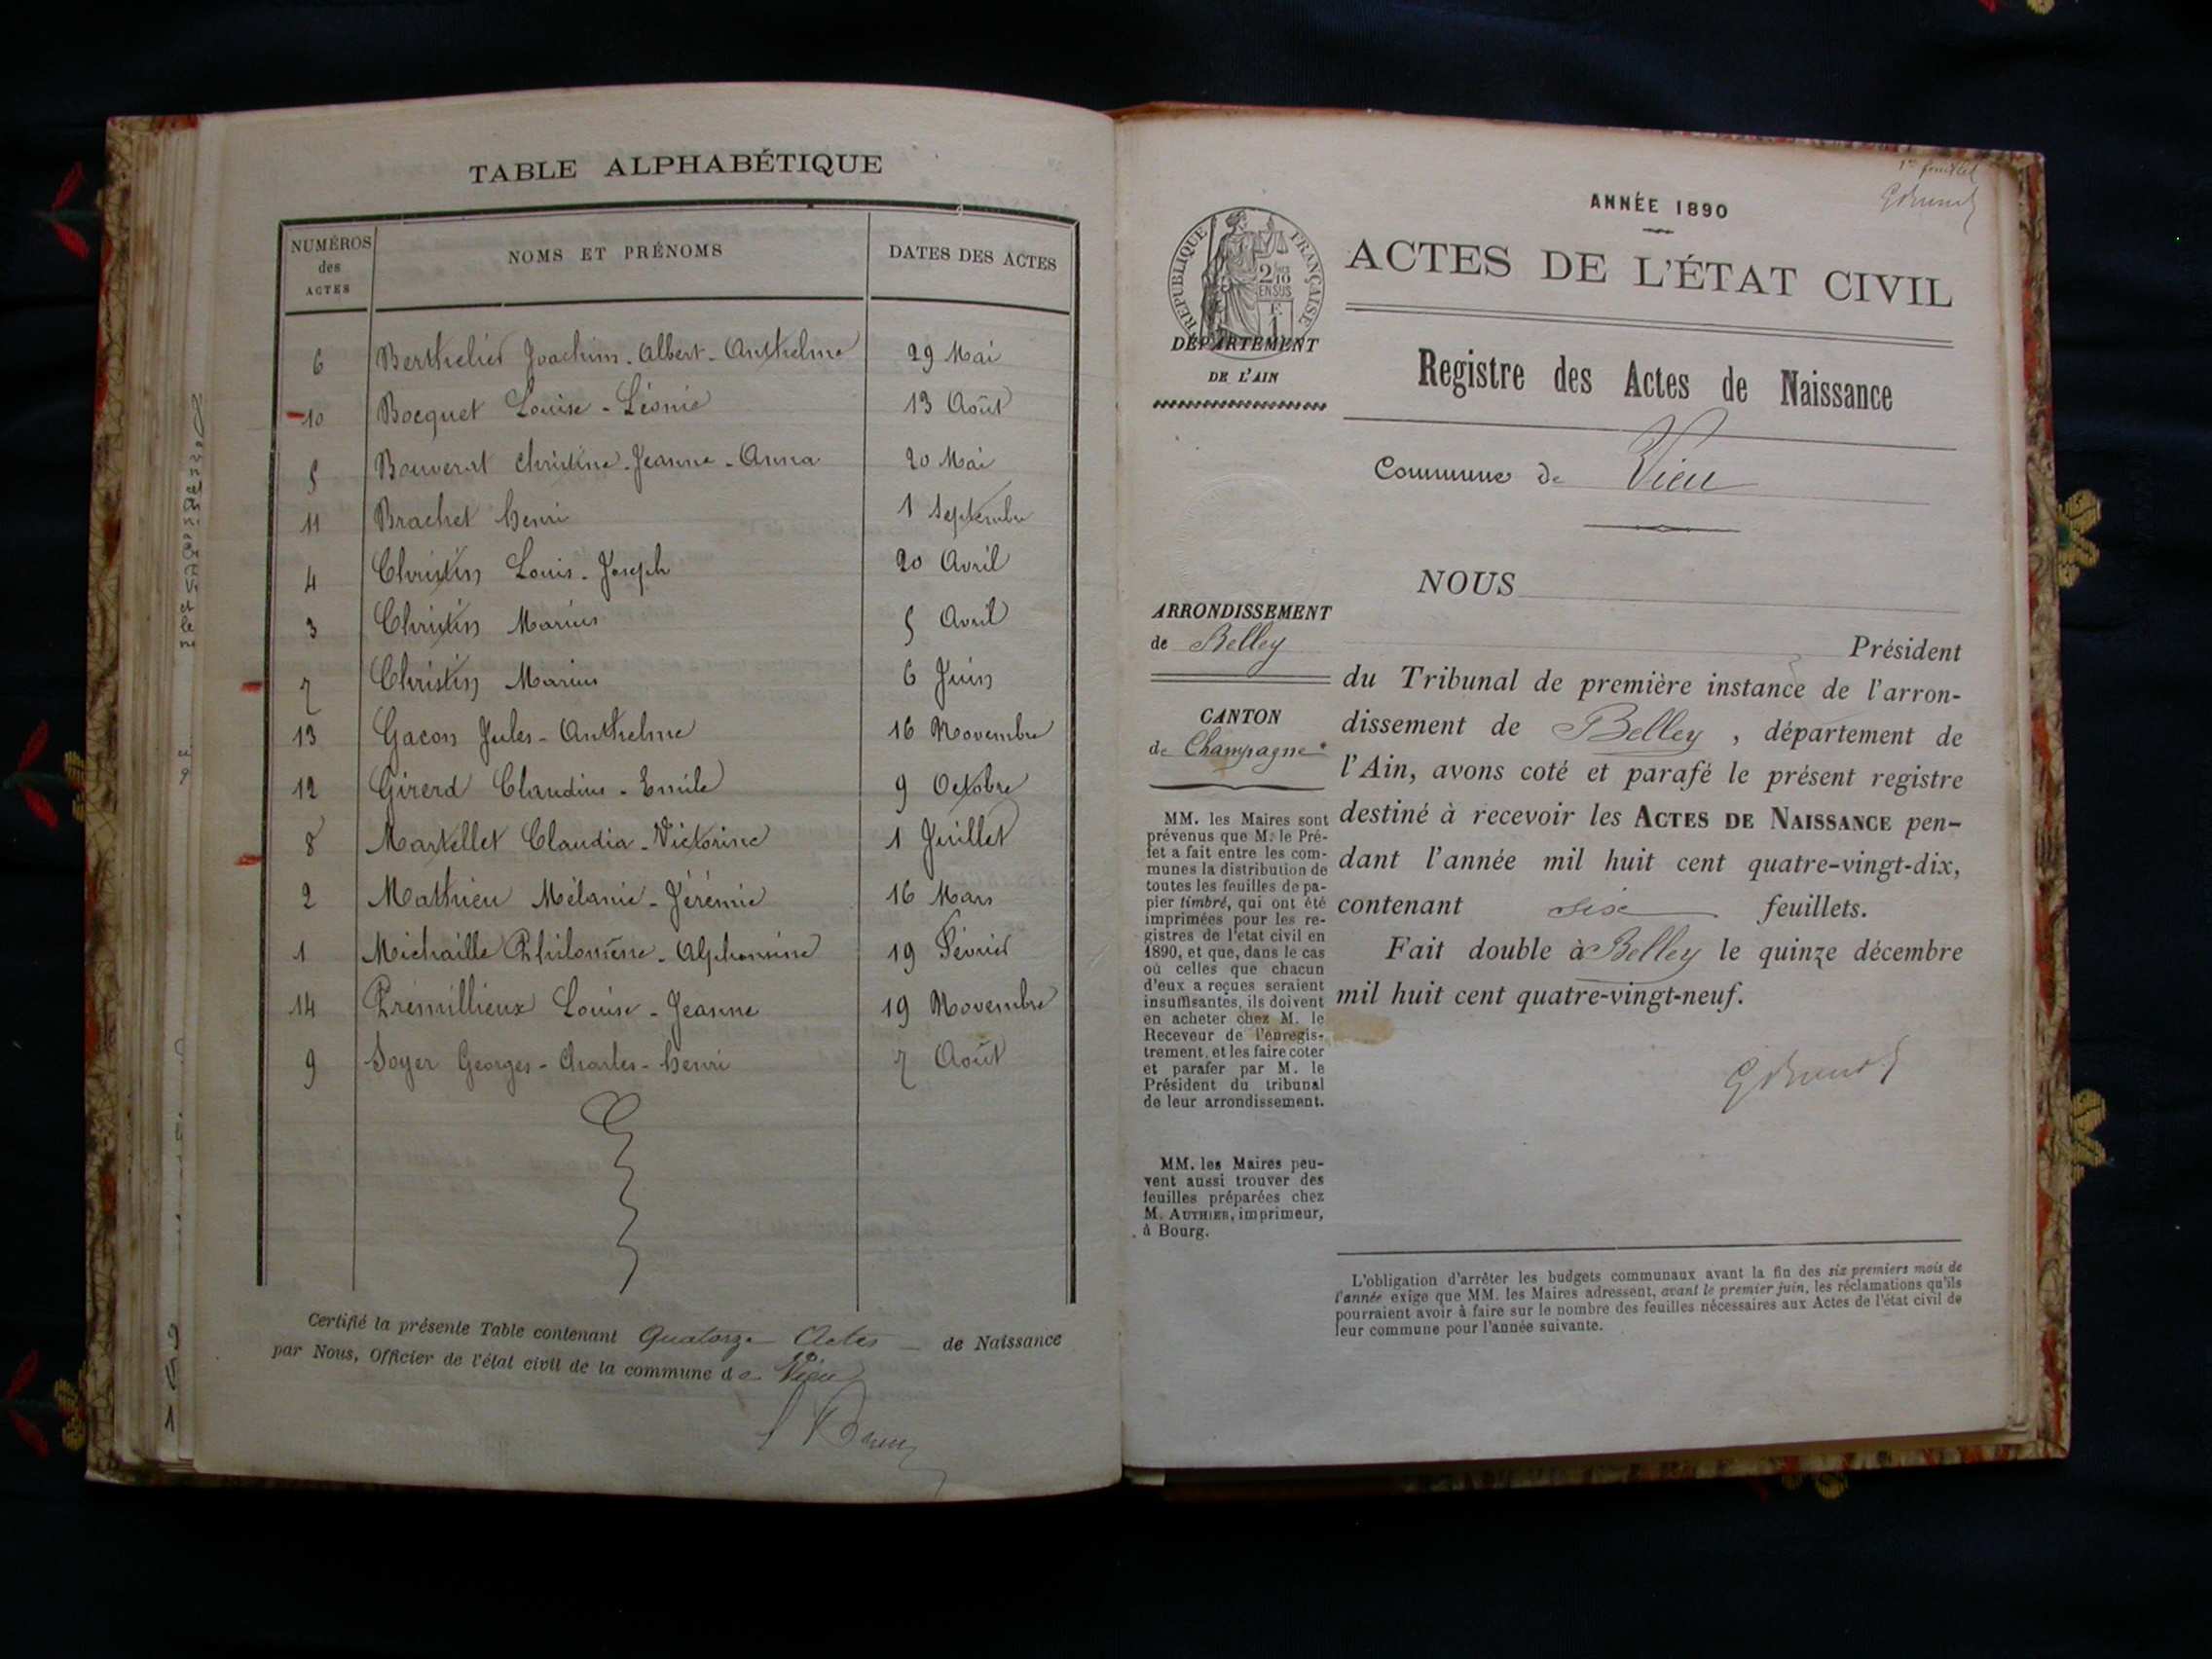 TABLE ALPHABÉTIQUE
NUMÉROS des ACTES NOMS ET PRÉNOMS DATES DES ACTES
6 Berthelier Joachim-Albert-Anthelme 29 Mai
10 Bocquet Louise-Léonie 13 Août
5 Bouverat Christine-Jeanne-Anna 20 Mai
11 Brachet henri 1 Septembre
4 Christin Louis-Joseph 20 Avril
3 Christin Marius 5 Avril
7 Christin Marius 6 Juin
13 Gacon Jules-Anthelme 16 Novembre
12 Girerd Claudius-Emile 9 Octobre
8 Martellet Claudia-Victorine 1 Juillet
2 Mathieu Mélanie-Jérémie 16 Mars
1 Michaille Philomène-Alphonsine 19 Février
14 Prémillieux Louise-Jeanne 19 Novembre
9 Soyer Georges-Charles-henri 7 Août
Certifié la présente Table contenant Quatorze Actes de Naissance
par Nous, Officier de l'état civil de la commune de Vieu
1er feuillet
ANNÉE 1890
RÉPUBLIQUE FRANÇAISE
2/10 EN SUS
F. 1
ACTES DE L'ÉTAT CIVIL
DÉPARTEMENT
DE L'AIN
Registre des Actes de Naissance
Commune de Vieu
NOUS
ARRONDISSEMENT
de Belley
Président
du Tribunal de première instance de l'arron-
dissement de Belley, département de
l'Ain, avons coté et parafé le présent registre
destiné à recevoir les ACTES DE NAISSANCE pen-
dant l'année mil huit cent quatre-vingt-dix,
contenant six feuillets.
Fait double à Belley le quinze décembre
mil huit cent quatre-vingt-neuf.
CANTON
de Champagne
MM. les Maires sont
prévenus que M. le Pré-
fet a fait entre les com-
munes la distribution de
toutes les feuilles de pa-
pier timbré, qui ont été
imprimées pour les re-
gistres de l'état civil en
1890, et que, dans le cas
où celles que chacun
d'eux a reçues seraient
insuffisantes, ils doivent
en acheter chez M. le
Receveur de l'enregis-
trement, et les faire coter
et parafer par M. le
Président du tribunal
de leur arrondissement.
MM. les Maires peu-
vent aussi trouver des
feuilles préparées chez
M. AUTHIER, imprimeur,
à Bourg.
L'obligation d'arrêter les budgets communaux avant la fin des six premiers mois de
l'année exige que MM. les Maires adressent, avant le premier juin, les réclamations qu'ils
pourraient avoir à faire sur le nombre des feuilles nécessaires aux Actes de l'état civil de
leur commune pour l'année suivante.